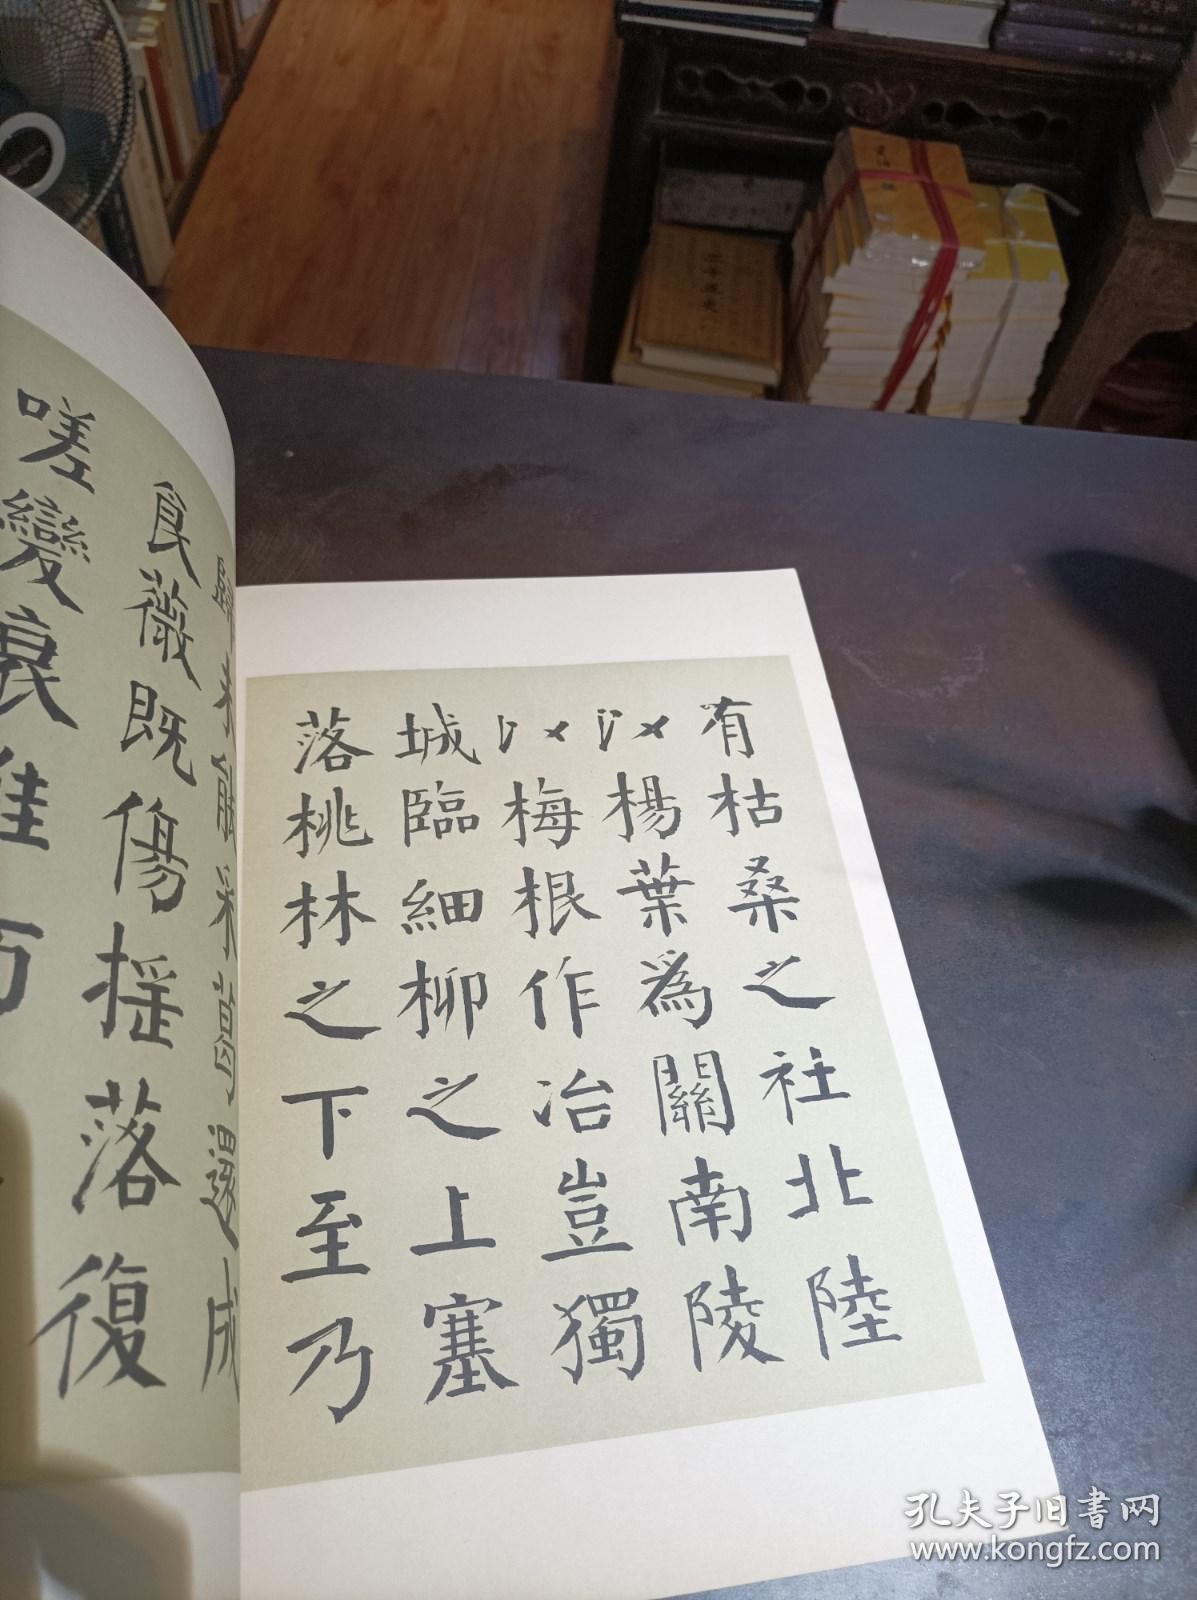 有枯桑之社北陸
以楊葉為關南陵
以梅根作冶豈獨
城臨細柳之上塞
落桃林之下至乃
未能采葛還成
食薇既傷搖落復
嗟變衰淮
二十五史
孔夫子旧书网
www.kongfz.com